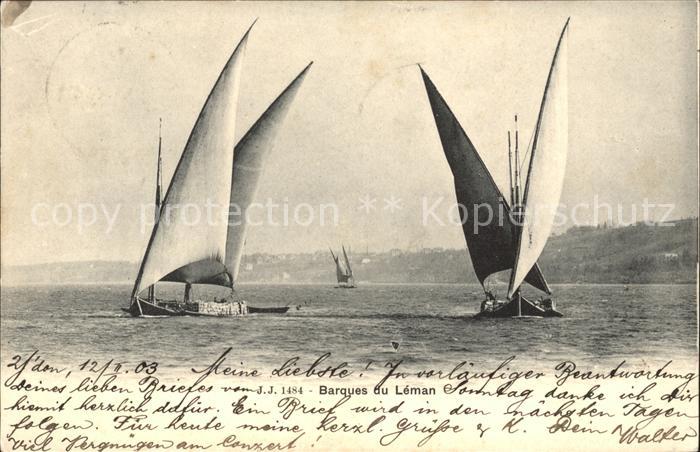 copy right ** Kopierschutz
12/II. 03 Meine Liebste! In vorläufiger Beantwortung
Deines lieben Briefes vom J.J. 1484 - Barques du Léman Sonntag danke ich Dir
hiemit herzlich dafür. Ein Brief wird in den nächsten Tagen
folgen. Für heute meine herzl. Grüsse & K. Dein Walter
viel Vergnügen am Conzert!